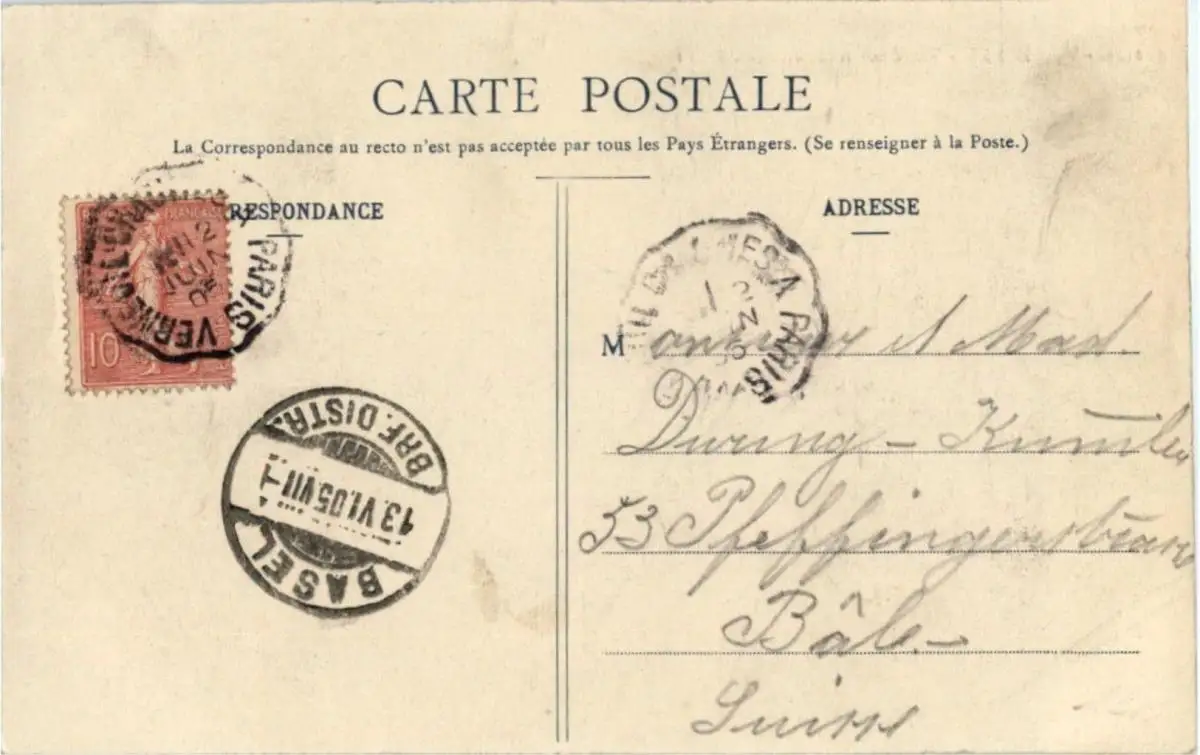 CARTE POSTALE
La Correspondance au recto n'est pas acceptée par tous les Pays Étrangers. (Se renseigner à la Poste.)
RESPONDANCE
ADRESSE
FRANÇAISE
10
PARIS
A PARIS
BRF. DISTR.
13. VI. 05. VII
BASEL
Monsieur et Mad.
During - Kümmler
53 Pfeffingerstrasse
Bâle -
Suisse